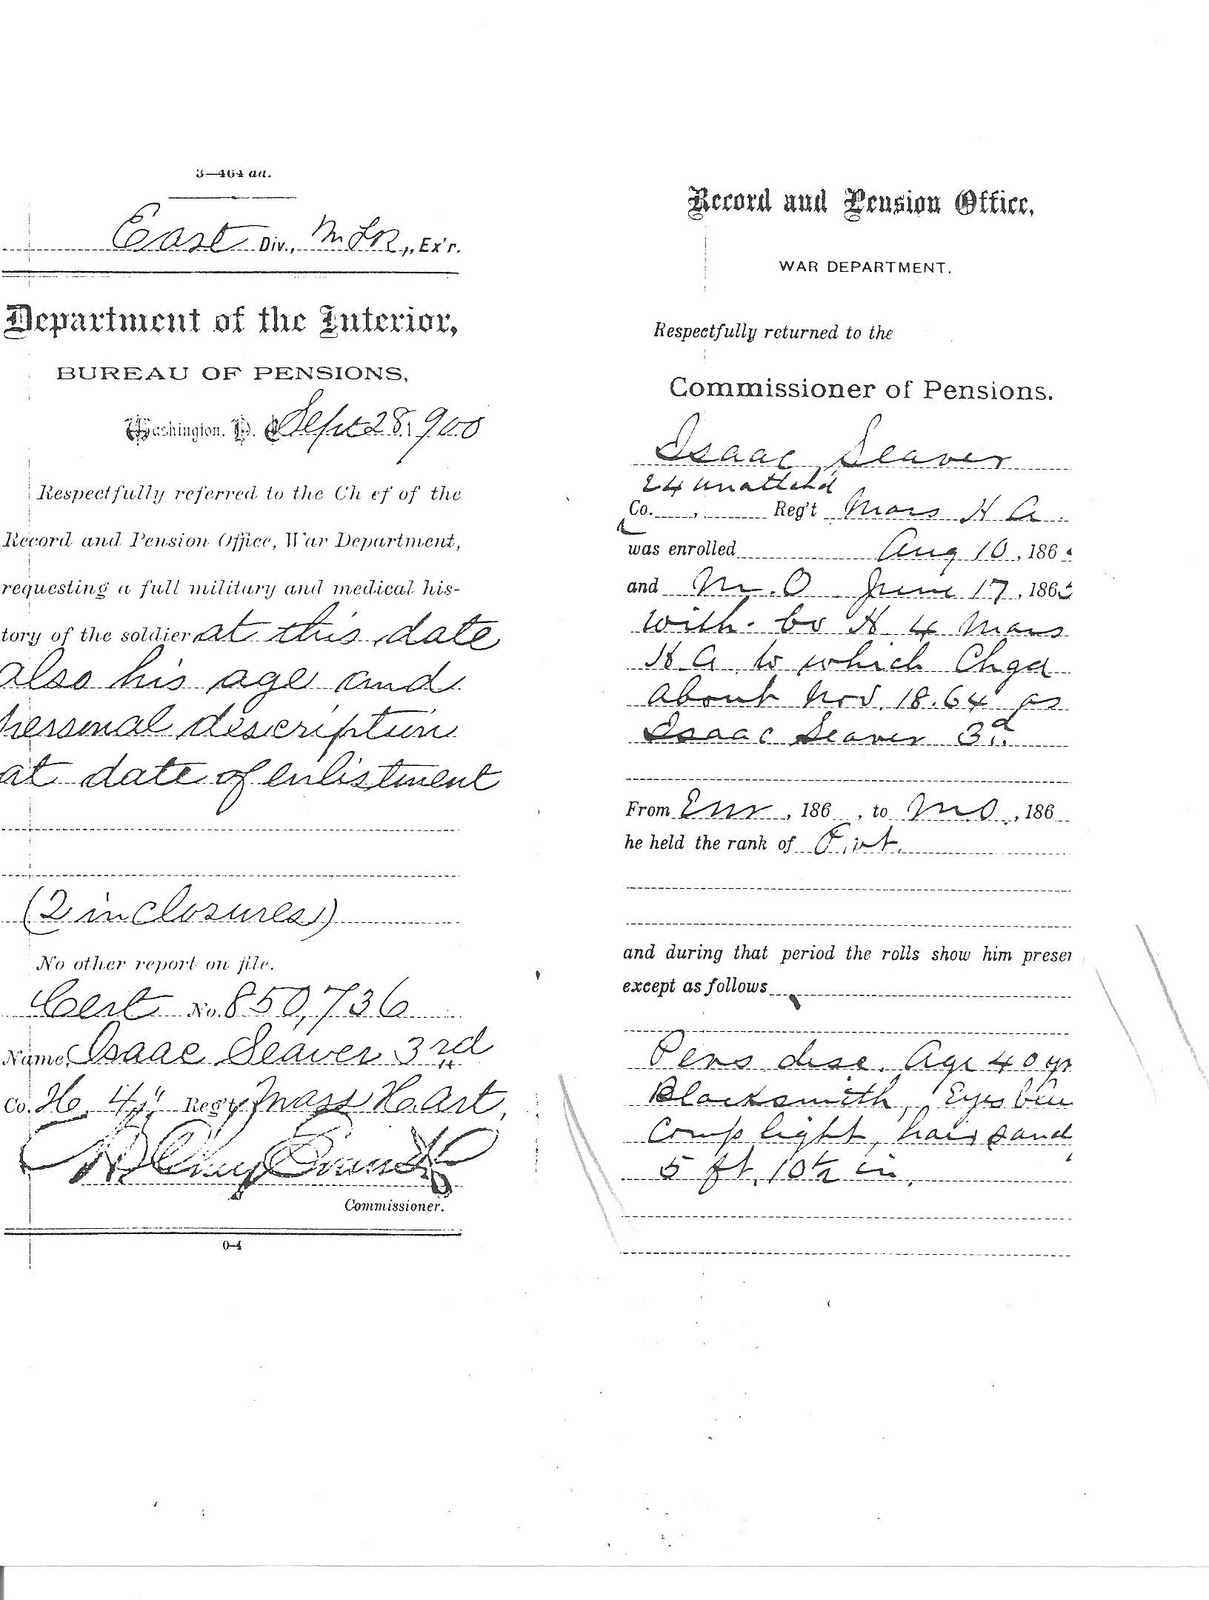 3—464 aa.
East Div., Ex'r.
Department of the Interior,
BUREAU OF PENSIONS,
Washington, D. C. Sept 28, 900
Respectfully referred to the Ch ef of the
Record and Pension Office, War Department,
requesting a full military and medical his-
tory of the soldier at this date
also his age and
personal description
at date of enlistment
(2 inclosures)
No other report on file.
Cert No. 850,736
Name, Isaac Seaver 3rd
Co. H, 4" Reg't Mass H. Art,
Commissioner.
0-4
Record and Pension Office,
WAR DEPARTMENT.
Respectfully returned to the
Commissioner of Pensions.
Isaac Seaver
24 unattchd
Co. , Reg't Mass H A.
was enrolled Aug 10, 186
and M.O June 17, 1865
with Co H 4 Mass
H A to which Chgd
about Nov. 18.64 as
Isaac Seaver 3d.
From Enr, 186 , to M.O., 186
he held the rank of Pvt.
and during that period the rolls show him presen
except as follows
Pers desc. Age 40 yr
Blacksmith, Eyes blue
Comp light, hair sand
5 ft. 10½ in.